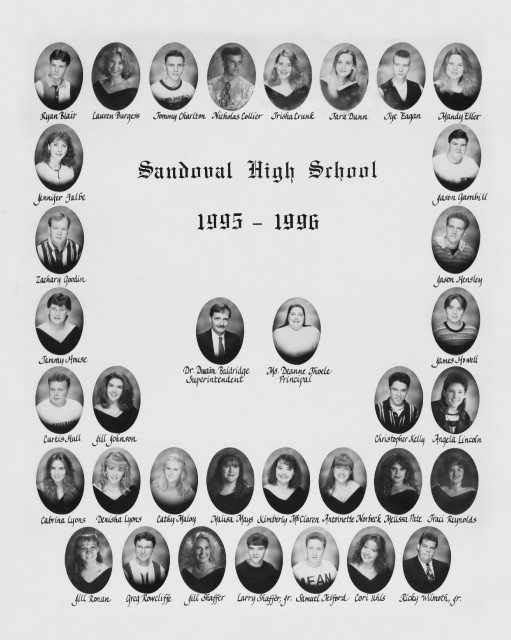 Ryan Blair Lauren Burgess Tommy Charlton Nicholas Collier Trisha Crunk Tara Dunn Tye Eagan Mandy Eller
Sandoval High School
Jennifer Falbe Jason Gambill
1995 - 1996
Zachary Goodin Jason Hensley
Tammy House James Howell
Dr. Dwain Baldridge Ms. Deanne
Superintendent Principal
Curtis Hull Jill Johnson Christopher Kelly Angela Lincoln
Cabrina Lyons Denisha Lyons Cathy Maloy Malisa Mays Kimberly McClaren Antoinette Norbeck Melissa Pate Traci Reynolds
Jill Ronan Greg Rowcliffe Jill Shaffer Larry Shaffer, Jr. Samuel Telford Cori Uhls Ricky Wilmoth, Jr.
MEAN